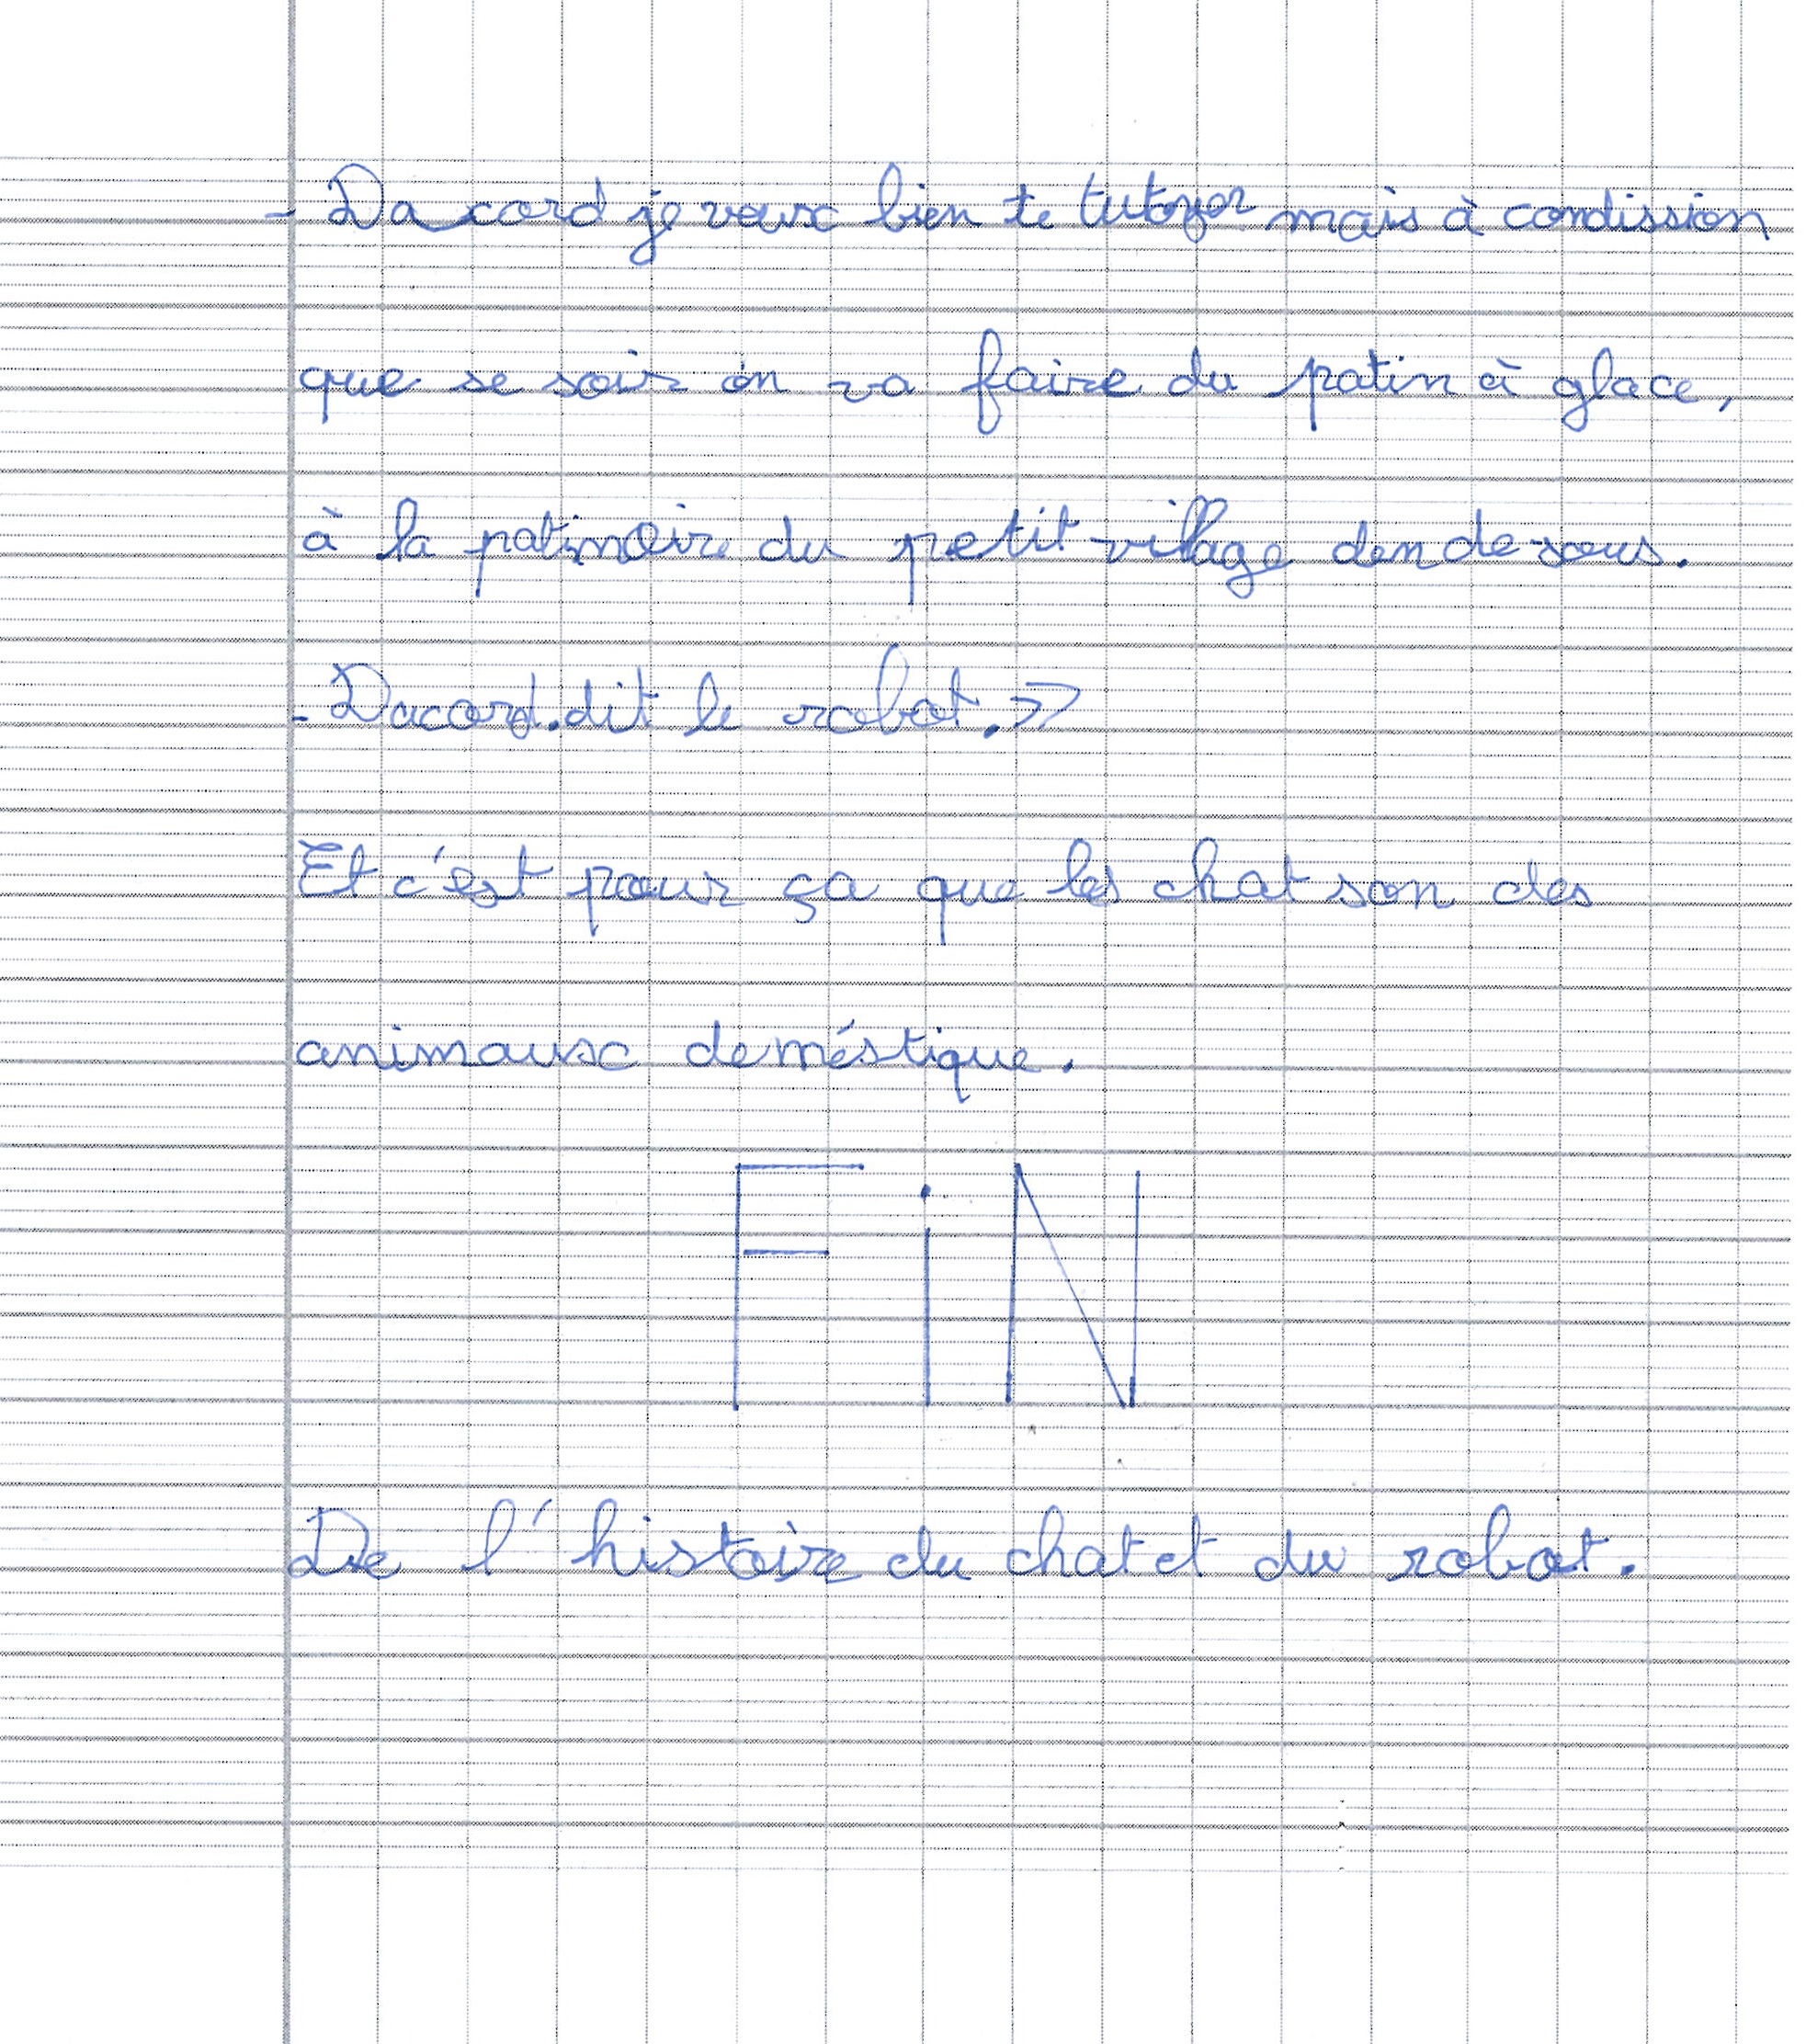 - Da cord je veux bien te tutoyer mais à condission
que se soir on va faire du patin à glace,
à la patinoire du petit village den de sous.
- Dacord. dit le robot. »
Et c'est pour ça que les chat son des
animaux deméstique.
FiN
De l'histoire du chat et du robot.